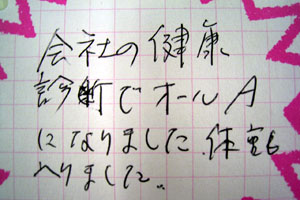 会社の健康
診断でオールA
になりました.体重も
へりました..